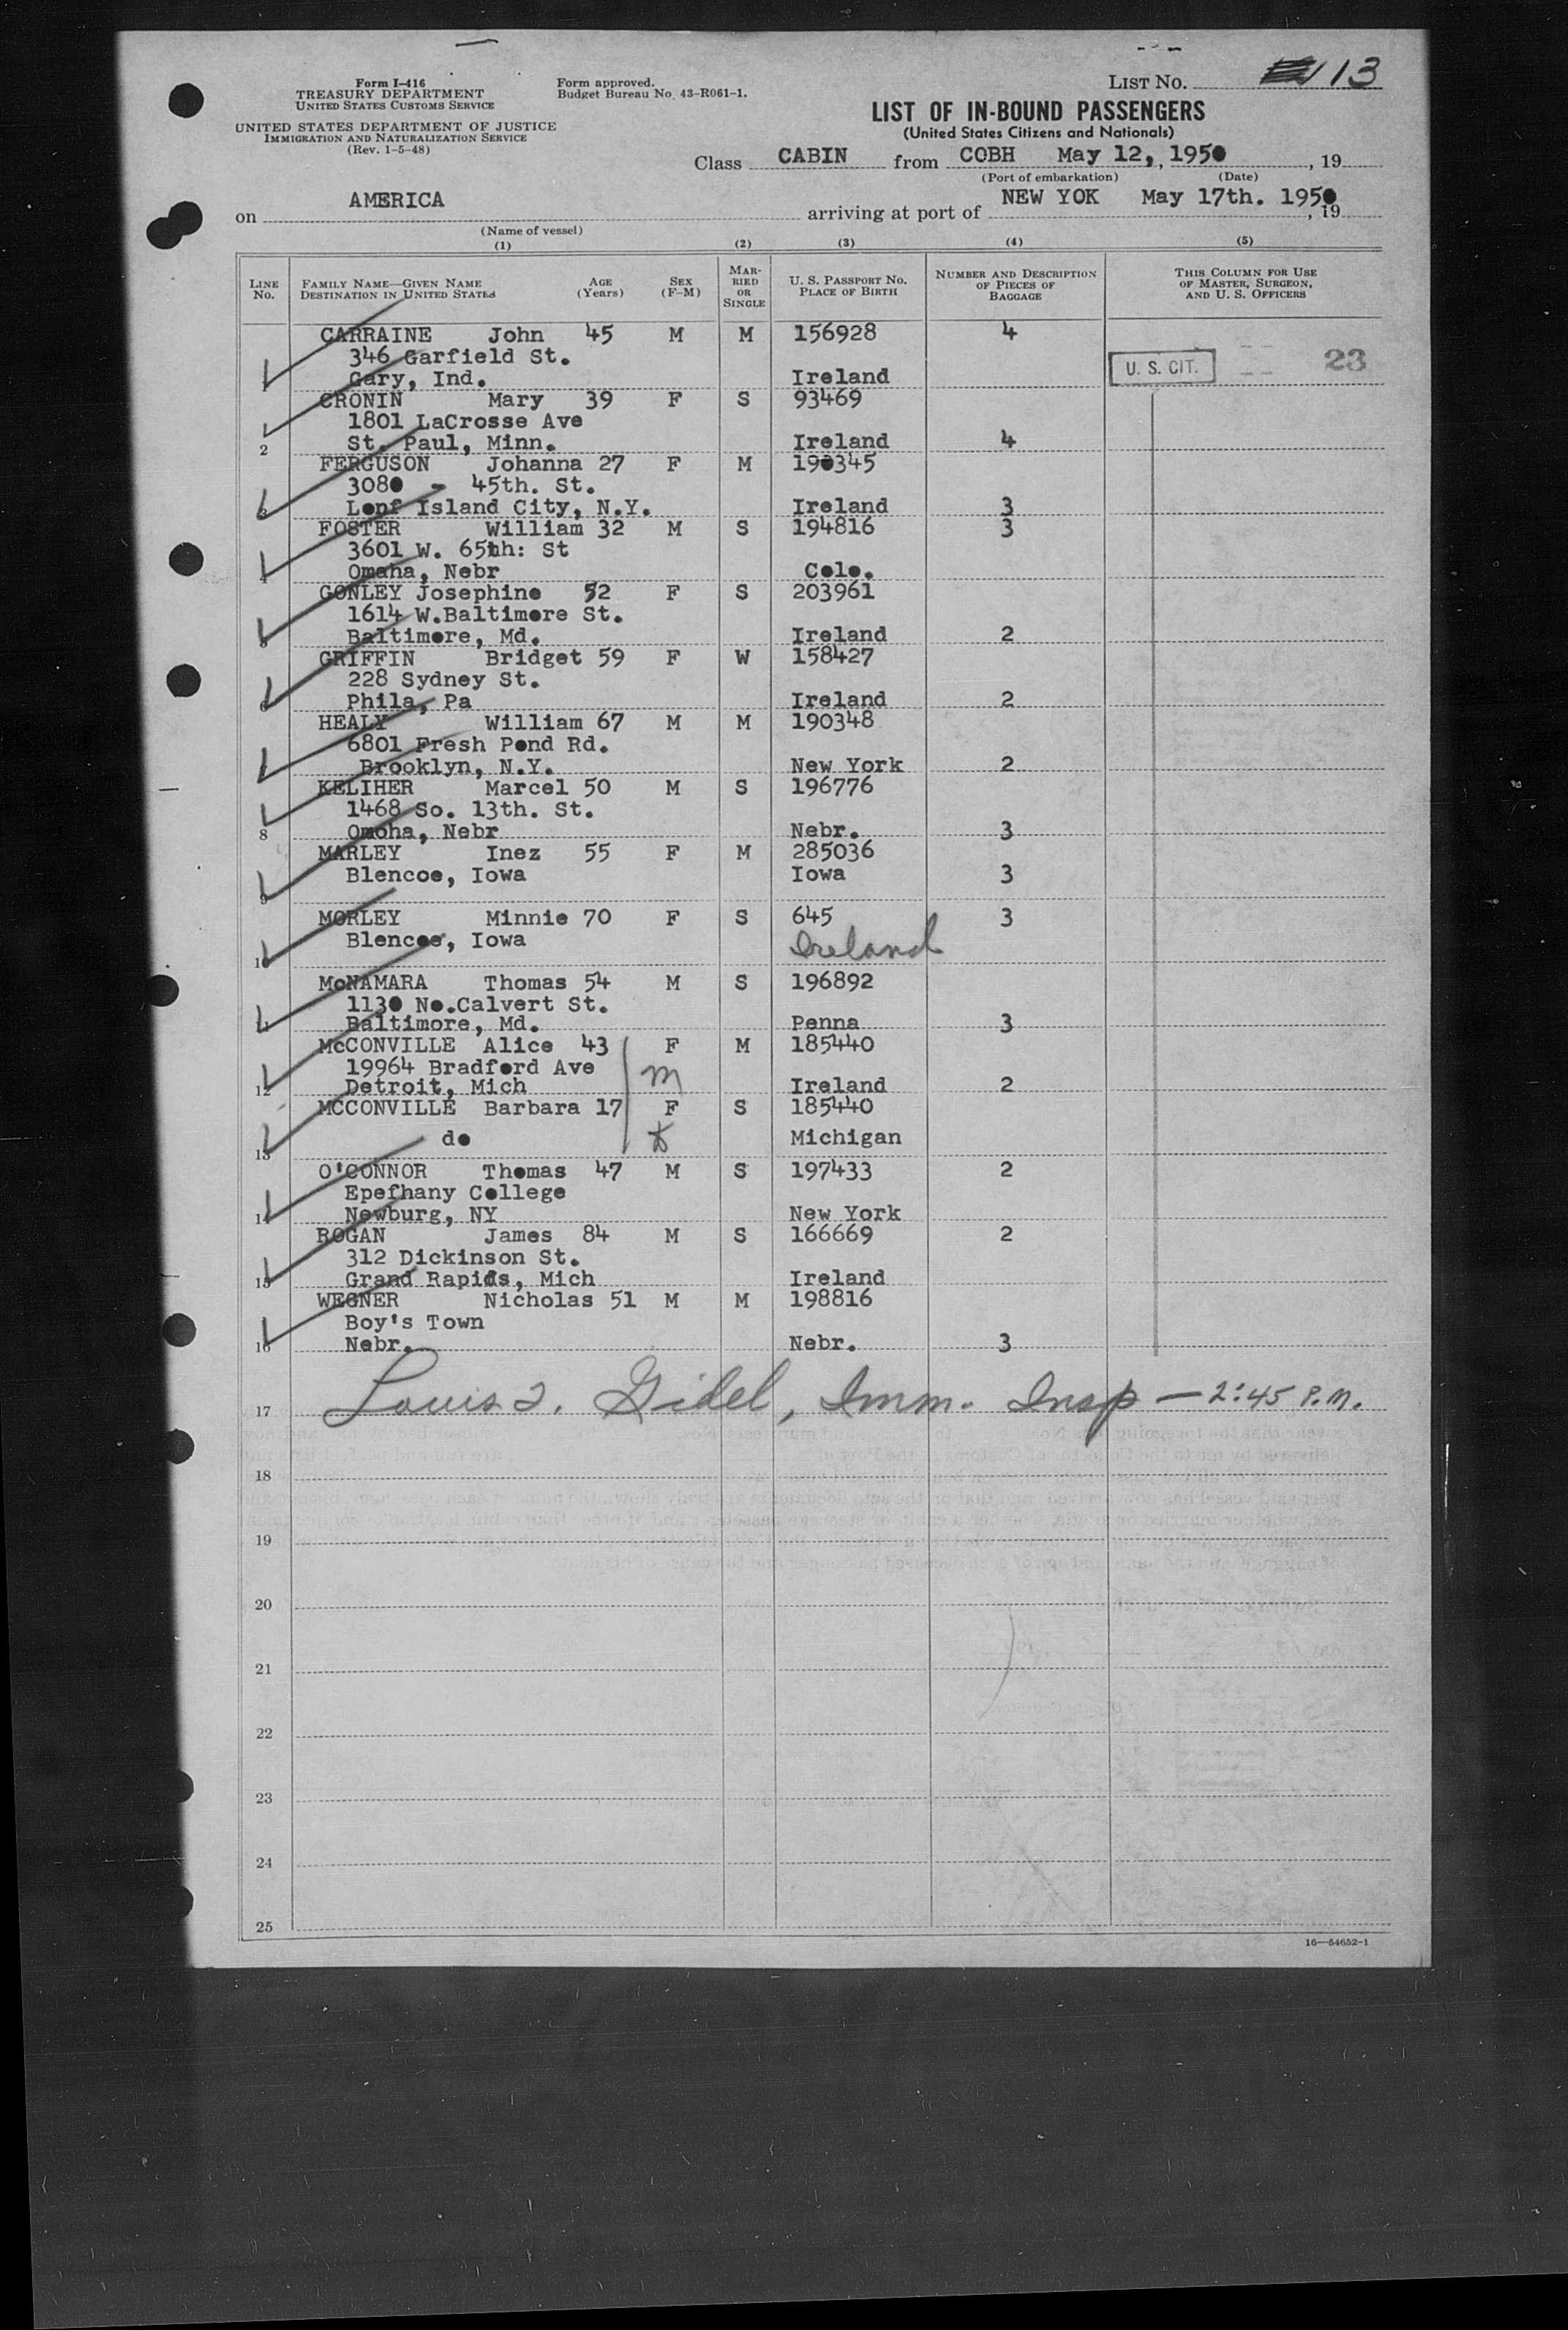 Form I-416
TREASURY DEPARTMENT
UNITED STATES CUSTOMS SERVICE
UNITED STATES DEPARTMENT OF JUSTICE
IMMIGRATION AND NATURALIZATION SERVICE
(Rev. 1-5-48)
Form approved.
Budget Bureau No. 43-R061-1.
LIST No. 113
LIST OF IN-BOUND PASSENGERS
(United States Citizens and Nationals)
Class CABIN from COBH May 12, 1950, 19
(Port of embarkation) (Date)
on AMERICA arriving at port of NEW YOK May 17th. 1950, 19
(Name of vessel)
(1) (2) (3) (4) (5)
LINE No. FAMILY NAME—GIVEN NAME DESTINATION IN UNITED STATES AGE (Years) SEX (F-M) MARRIED OR SINGLE U. S. PASSPORT No. PLACE OF BIRTH NUMBER AND DESCRIPTION OF PIECES OF BAGGAGE THIS COLUMN FOR USE OF MASTER, SURGEON, AND U. S. OFFICERS
CARRAINE John 45 M M 156928 4
346 Garfield St.
U. S. CIT. 23
Gary, Ind. Ireland
CRONIN Mary 39 F S 93469
1801 LaCrosse Ave
2 St. Paul, Minn. Ireland 4
FERGUSON Johanna 27 F M 190345
3080 - 45th. St.
3 Lonf Island City, N.Y. Ireland 3
FOSTER William 32 M S 194816 3
3601 W. 65th: St
4 Omaha, Nebr Colo.
GONLEY Josephine 52 F S 203961
1614 W.Baltimore St.
5 Baltimore, Md. Ireland 2
GRIFFIN Bridget 59 F W 158427
228 Sydney St.
6 Phila, Pa Ireland 2
HEALY William 67 M M 190348
6801 Fresh Pond Rd.
Brooklyn, N.Y. New York 2
KELIHER Marcel 50 M S 196776
1468 So. 13th. St.
8 Omoha, Nebr Nebr. 3
MARLEY Inez 55 F M 285036
Blencoe, Iowa Iowa 3
9
MORLEY Minnie 70 F S 645 3
Blencoe, Iowa Ireland
10
McNAMARA Thomas 54 M S 196892
1130 No.Calvert St.
11 Baltimore, Md. Penna 3
McCONVILLE Alice 43 F M 185440
19964 Bradford Ave m
12 Detroit, Mich Ireland 2
MCCONVILLE Barbara 17 F S 185440
13 do Michigan
O'CONNOR Thomas 47 M S 197433 2
Epefhany College
14 Newburg, NY New York
ROGAN James 84 M S 166669 2
312 Dickinson St.
15 Grand Rapids, Mich Ireland
WEGNER Nicholas 51 M M 198816
Boy's Town
16 Nebr. Nebr. 3
17 Louis J. Gidel, Imm. Insp — 2:45 P.M.
18
19
20
21
22
23
24
25
16—54652-1